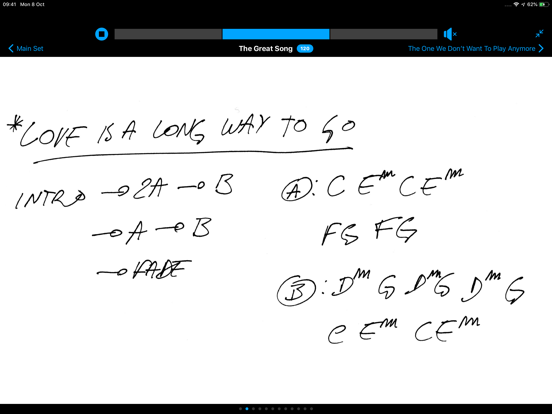 09:41 Mon 8 Oct 62%
Main Set The Great Song 120 The One We Don't Want To Play Anymore
*LOVE IS A LONG WAY TO GO
INTRO → 2A → B
→ A → B
→ FADE
A: C Em C Em
FG FG
B: Dm G Dm G Dm G
C Em C Em